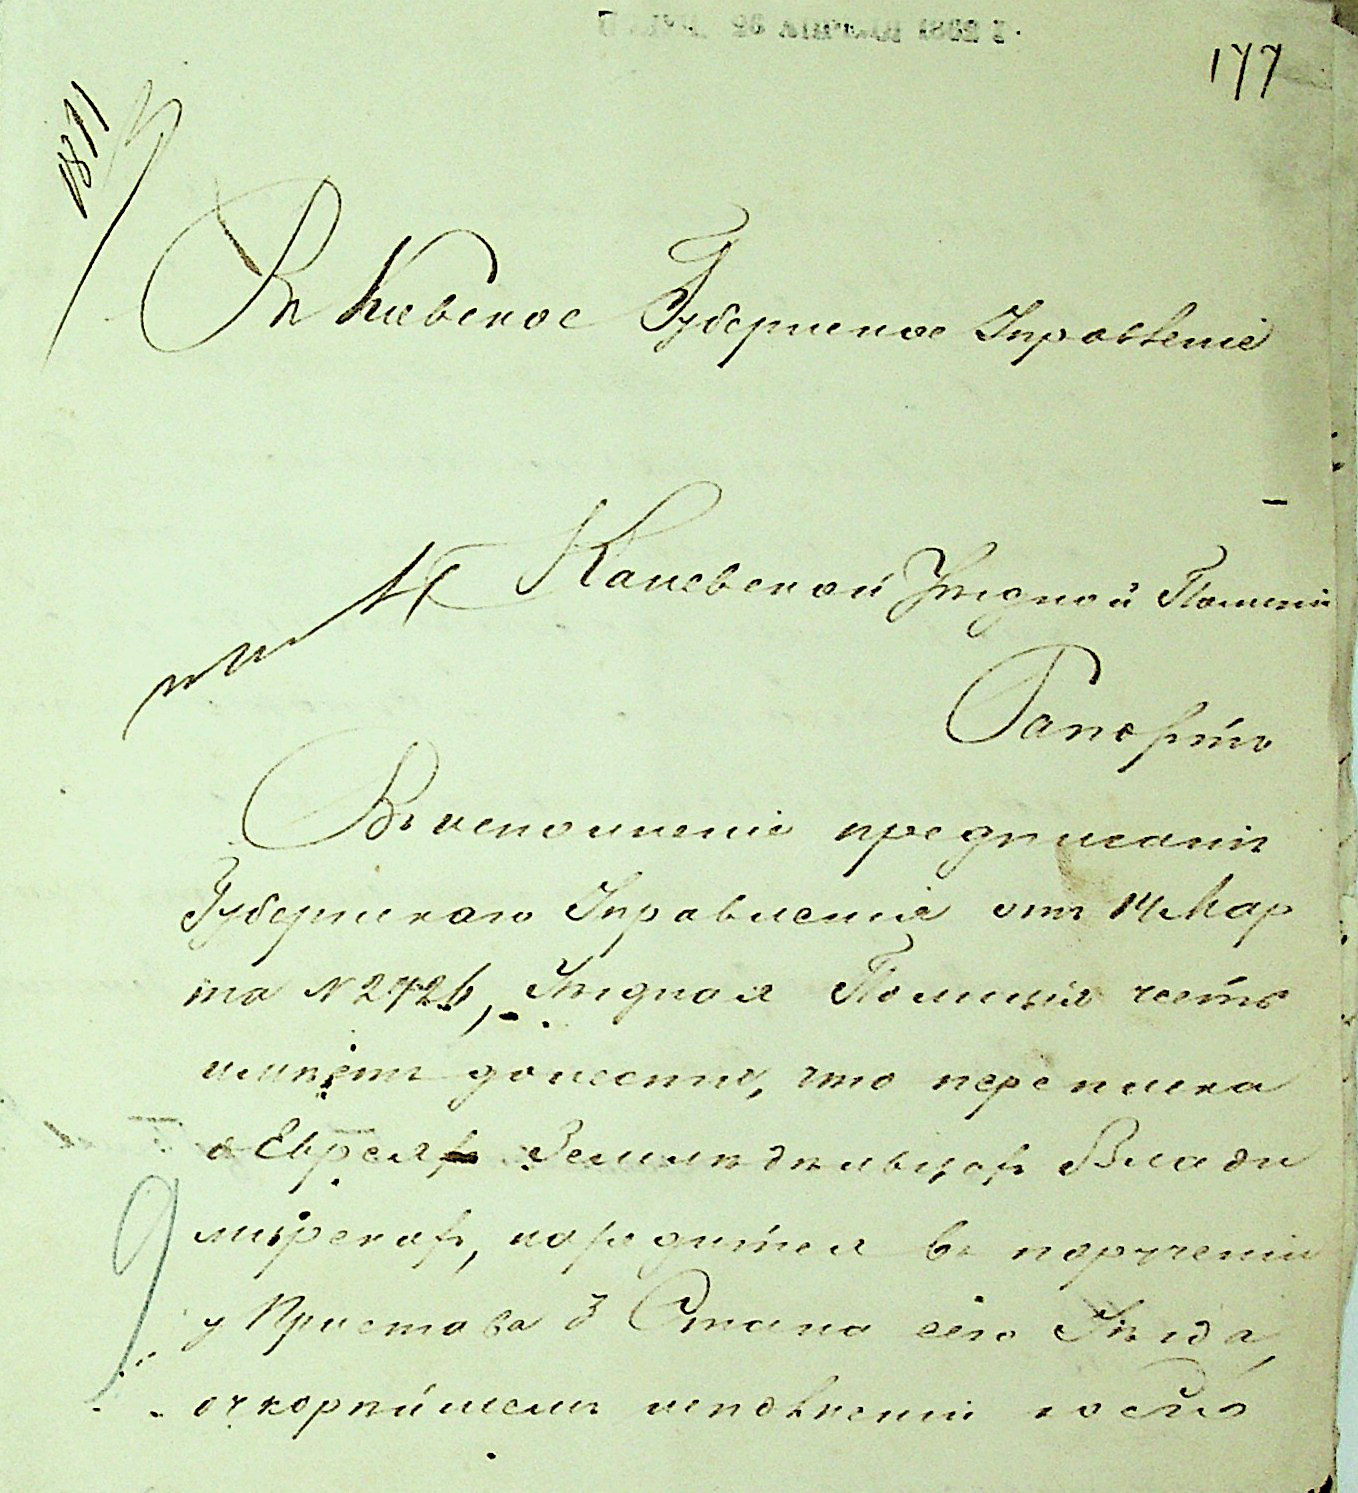 177
1811
Въ Киевское Губернское Управленіе
Каневской Уѣздной Полиціи
Рапортъ
Въ исполненіе предписанія
Губернскаго Управленія отъ 14 Мар
та № 2426, Уѣздная Полиція честь
имѣетъ донести, что переписка
о Евреяхъ Земледѣльцахъ Влади
мірскихъ, находится въ порученіи
у Пристава 3 Стана сего Уѣзда,
о скорѣйшемъ исполненіи